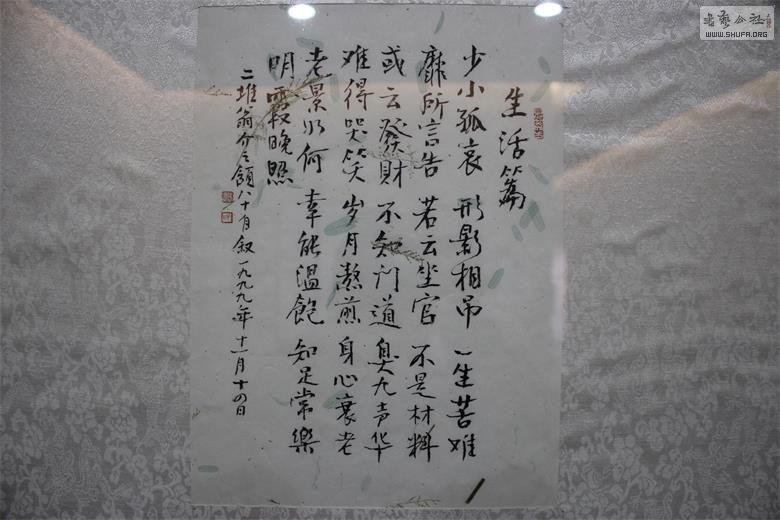 生活篇
少小孤哀 形影相吊 一生苦难
靡所言告 若云坐官 不是材料
或云發財 不知门道 臭九声华
难得哭笑 岁月熬煎 身心衰老
老景如何 幸能温飽 知足常樂
明霞晚照
二堆翁介之顔八十月叙一九九九年十一月十四日
書藝公社
WWW.SHUFA.ORG